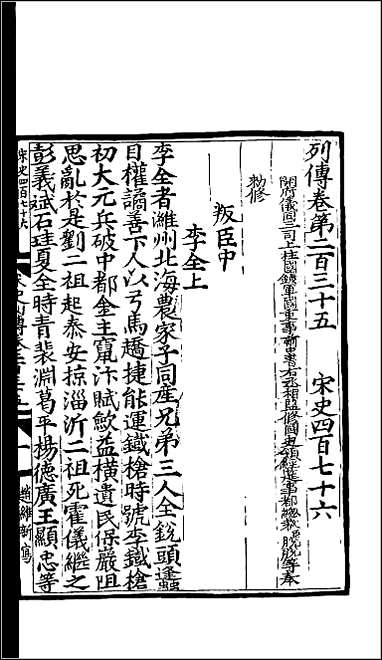 列傳卷第二百三十五　宋史四百七十六
開府儀同三司上柱國錄軍國重事前中書右丞相監修國史領經筵事都總裁脫脫等奉
勑修
叛臣中
李全上
李全者濰州北海農家子同產兄弟三人全銳頭蠭
目權譎善下人以弓馬趫捷能運鐵槍時號李鐵槍
初大元兵破中都金主竄汴賦斂益橫遺民保嚴阻
思亂於是劉二祖起泰安掠淄沂二祖死霍儀繼之
彭義斌石珪夏全時青裴淵葛平楊德廣王顯忠等
宋史四百七十六
一
趙維新寫